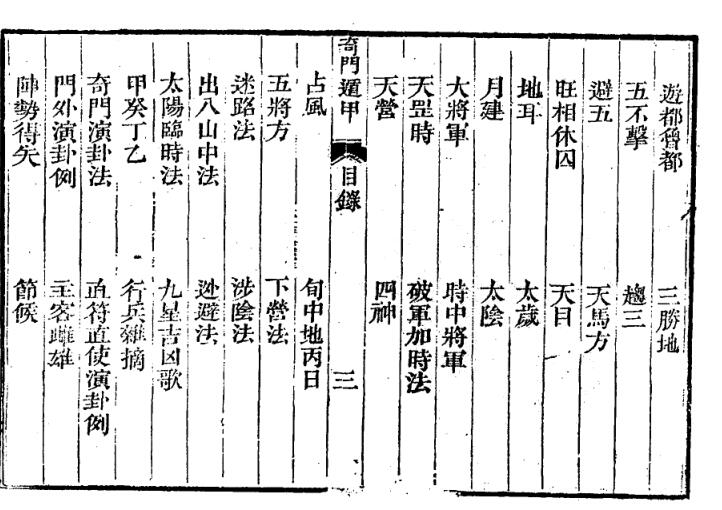 遊都魯都　三勝地
五不擊　趨三
避五　天馬方
旺相休囚　天目
地耳　太歲
月建　太陰
大將軍　時中將軍
天罡時　破軍加時法
天營　四神
奇門遁甲　目錄　三
占風　旬中地丙日
五將方　下營法
迷路法　涉陰法
出八山中法　逊避法
太陽臨時法　九星吉凶歌
甲癸丁乙　行兵雜摘
奇門演卦法　直符直使演卦例
門外演卦例　主客雌雄
陣勢得失　節候